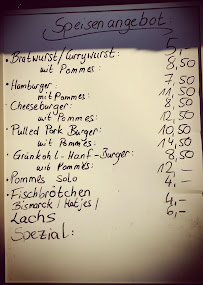 Speisenangebot:
Bratwurst/Currywurst: 5,-
mit Pommes: 8,50
Hamburger 7,50
mit Pommes: 11,50
Cheeseburger: 8,50
mit Pommes: 12,50
Pulled Pork Burger: 10,50
mit Pommes: 14,50
Grünkohl-Hanf-Burger: 8,50
mit Pommes: 12,-
Pommes Solo 4,-
Fischbrötchen
Bismarck/Matjes/ 4,-
Lachs 6,-
Spezial: